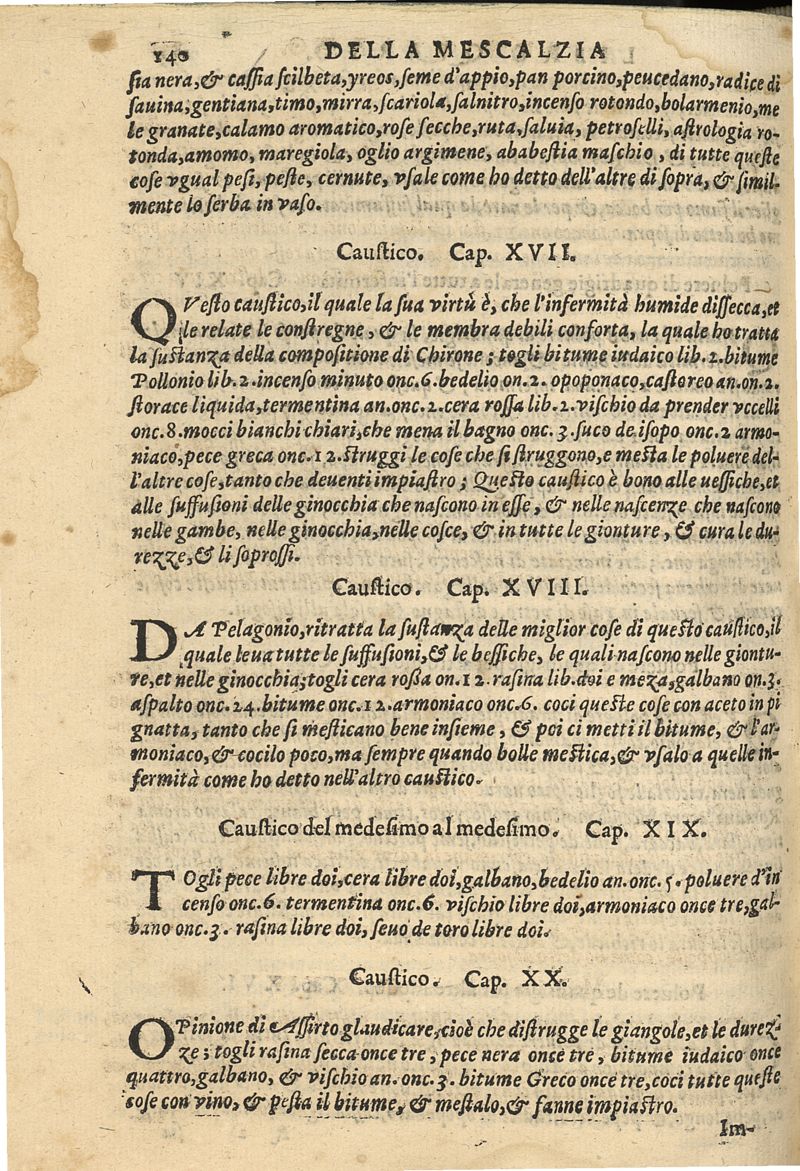 140 DELLA MESCALZIA
sia nera,& cassia scilbeta,yreos,seme d'appio,pan porcino,peucedano,radice di
sauina,gentiana,timo,mirra,scariola,salnitro,incenso rotondo,bolarmenio,me
le granate,calamo aromatico,rose secche,ruta,saluia, petroselli, astrologia ro-
tonda,amomo, maregiola, oglio argimene, ababestia maschio , di tutte queste
cose vgual pesi, peste, cernute, vsale come ho detto dell'altre di sopra, & simil-
mente lo serba in vaso.
Caustico. Cap. XVII.
QVesto caustico,il quale la sua virtù è, che l'infermità humide dissecca,et
le relate le constregne, & le membra debili conforta, la quale ho tratta
la sustanza della compositione di Chirone ; togli bitume iudaico lib.2.bitume
Pollonio lib.2.incenso minuto onc.6.bedelio on.2. opoponaco,castoreo an.on.2.
storace liquida,termentina an.onc.2.cera rossa lib.2.vischio da prender vccelli
onc.8.mocci bianchi chiari,che mena il bagno onc. 3.suco de isopo onc.2 armo-
niaco,pece greca onc.12.struggi le cose che si struggono,e mesta le poluere del-
l'altre cose,tanto che deuenti impiastro ; Questo caustico è bono alle uessiche,et
alle suffusioni delle ginocchia che nascono in esse, & nelle nascenze che nascono
nelle gambe, nelle ginocchia,nelle cosce, & in tutte le gionture , & cura le du-
rezze,& li soprossi.
Caustico. Cap. XVIII.
DA Pelagonio,ritratta la sustanza delle miglior cose di questo caustico,il
quale leua tutte le suffusioni,& le bessiche, le quali nascono nelle giontu-
re,et nelle ginocchia;togli cera rossa on.12.rasina lib.doi e meza,galbano on.3.
aspalto onc.24.bitume onc.12.armoniaco onc.6. coci queste cose con aceto in pi
gnatta, tanto che si mesticano bene insieme , & poi ci metti il bitume, & l'ar-
moniaco,& cocilo poco,ma sempre quando bolle mestica,& vsalo a quelle in-
fermità come ho detto nell'altro caustico.
Caustico del medesimo al medesimo. Cap. XIX.
TOgli pece libre doi,cera libre doi,galbano,bedelio an.onc.5.poluere d'in
censo onc.6. termentina onc.6. vischio libre doi,armoniaco once tre,gal-
bano onc.3. rasina libre doi, seuo de toro libre doi.
Caustico. Cap. XX.
OPinione di Assirto glaudicare,cioè che distrugge le giangole,et le durez-
ze ; togli rasina secca once tre, pece nera once tre , bitume iudaico once
quattro,galbano, & vischio an. onc.3. bitume Greco once tre,coci tutte queste
cose con vino, & pesta il bitume, & mestalo,& fanne impiastro.
Im-